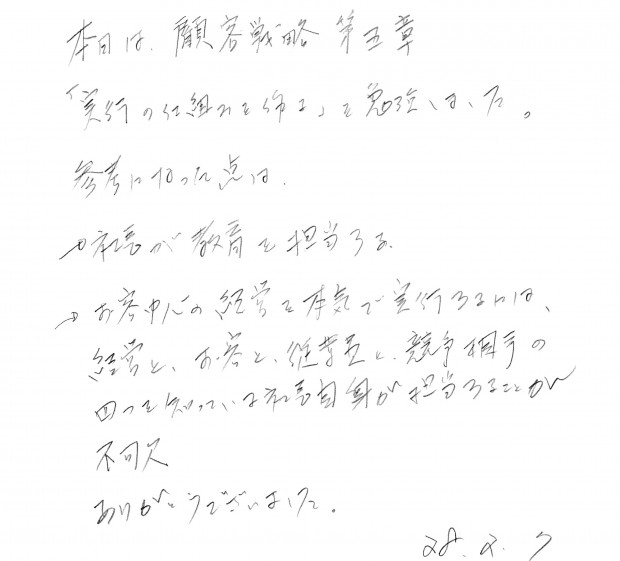 本日は、顧客戦略 第五章
「実行の仕組みを作る」を勉強しました。
参考になった点は、
社長が教育を担当する。
→ お客中心の経営を本気で実行するには、
経営と、お客と、従業員と、競争相手の
四つを知っている社長自身が担当することが
不可欠
ありがとうございました。
28.2.7